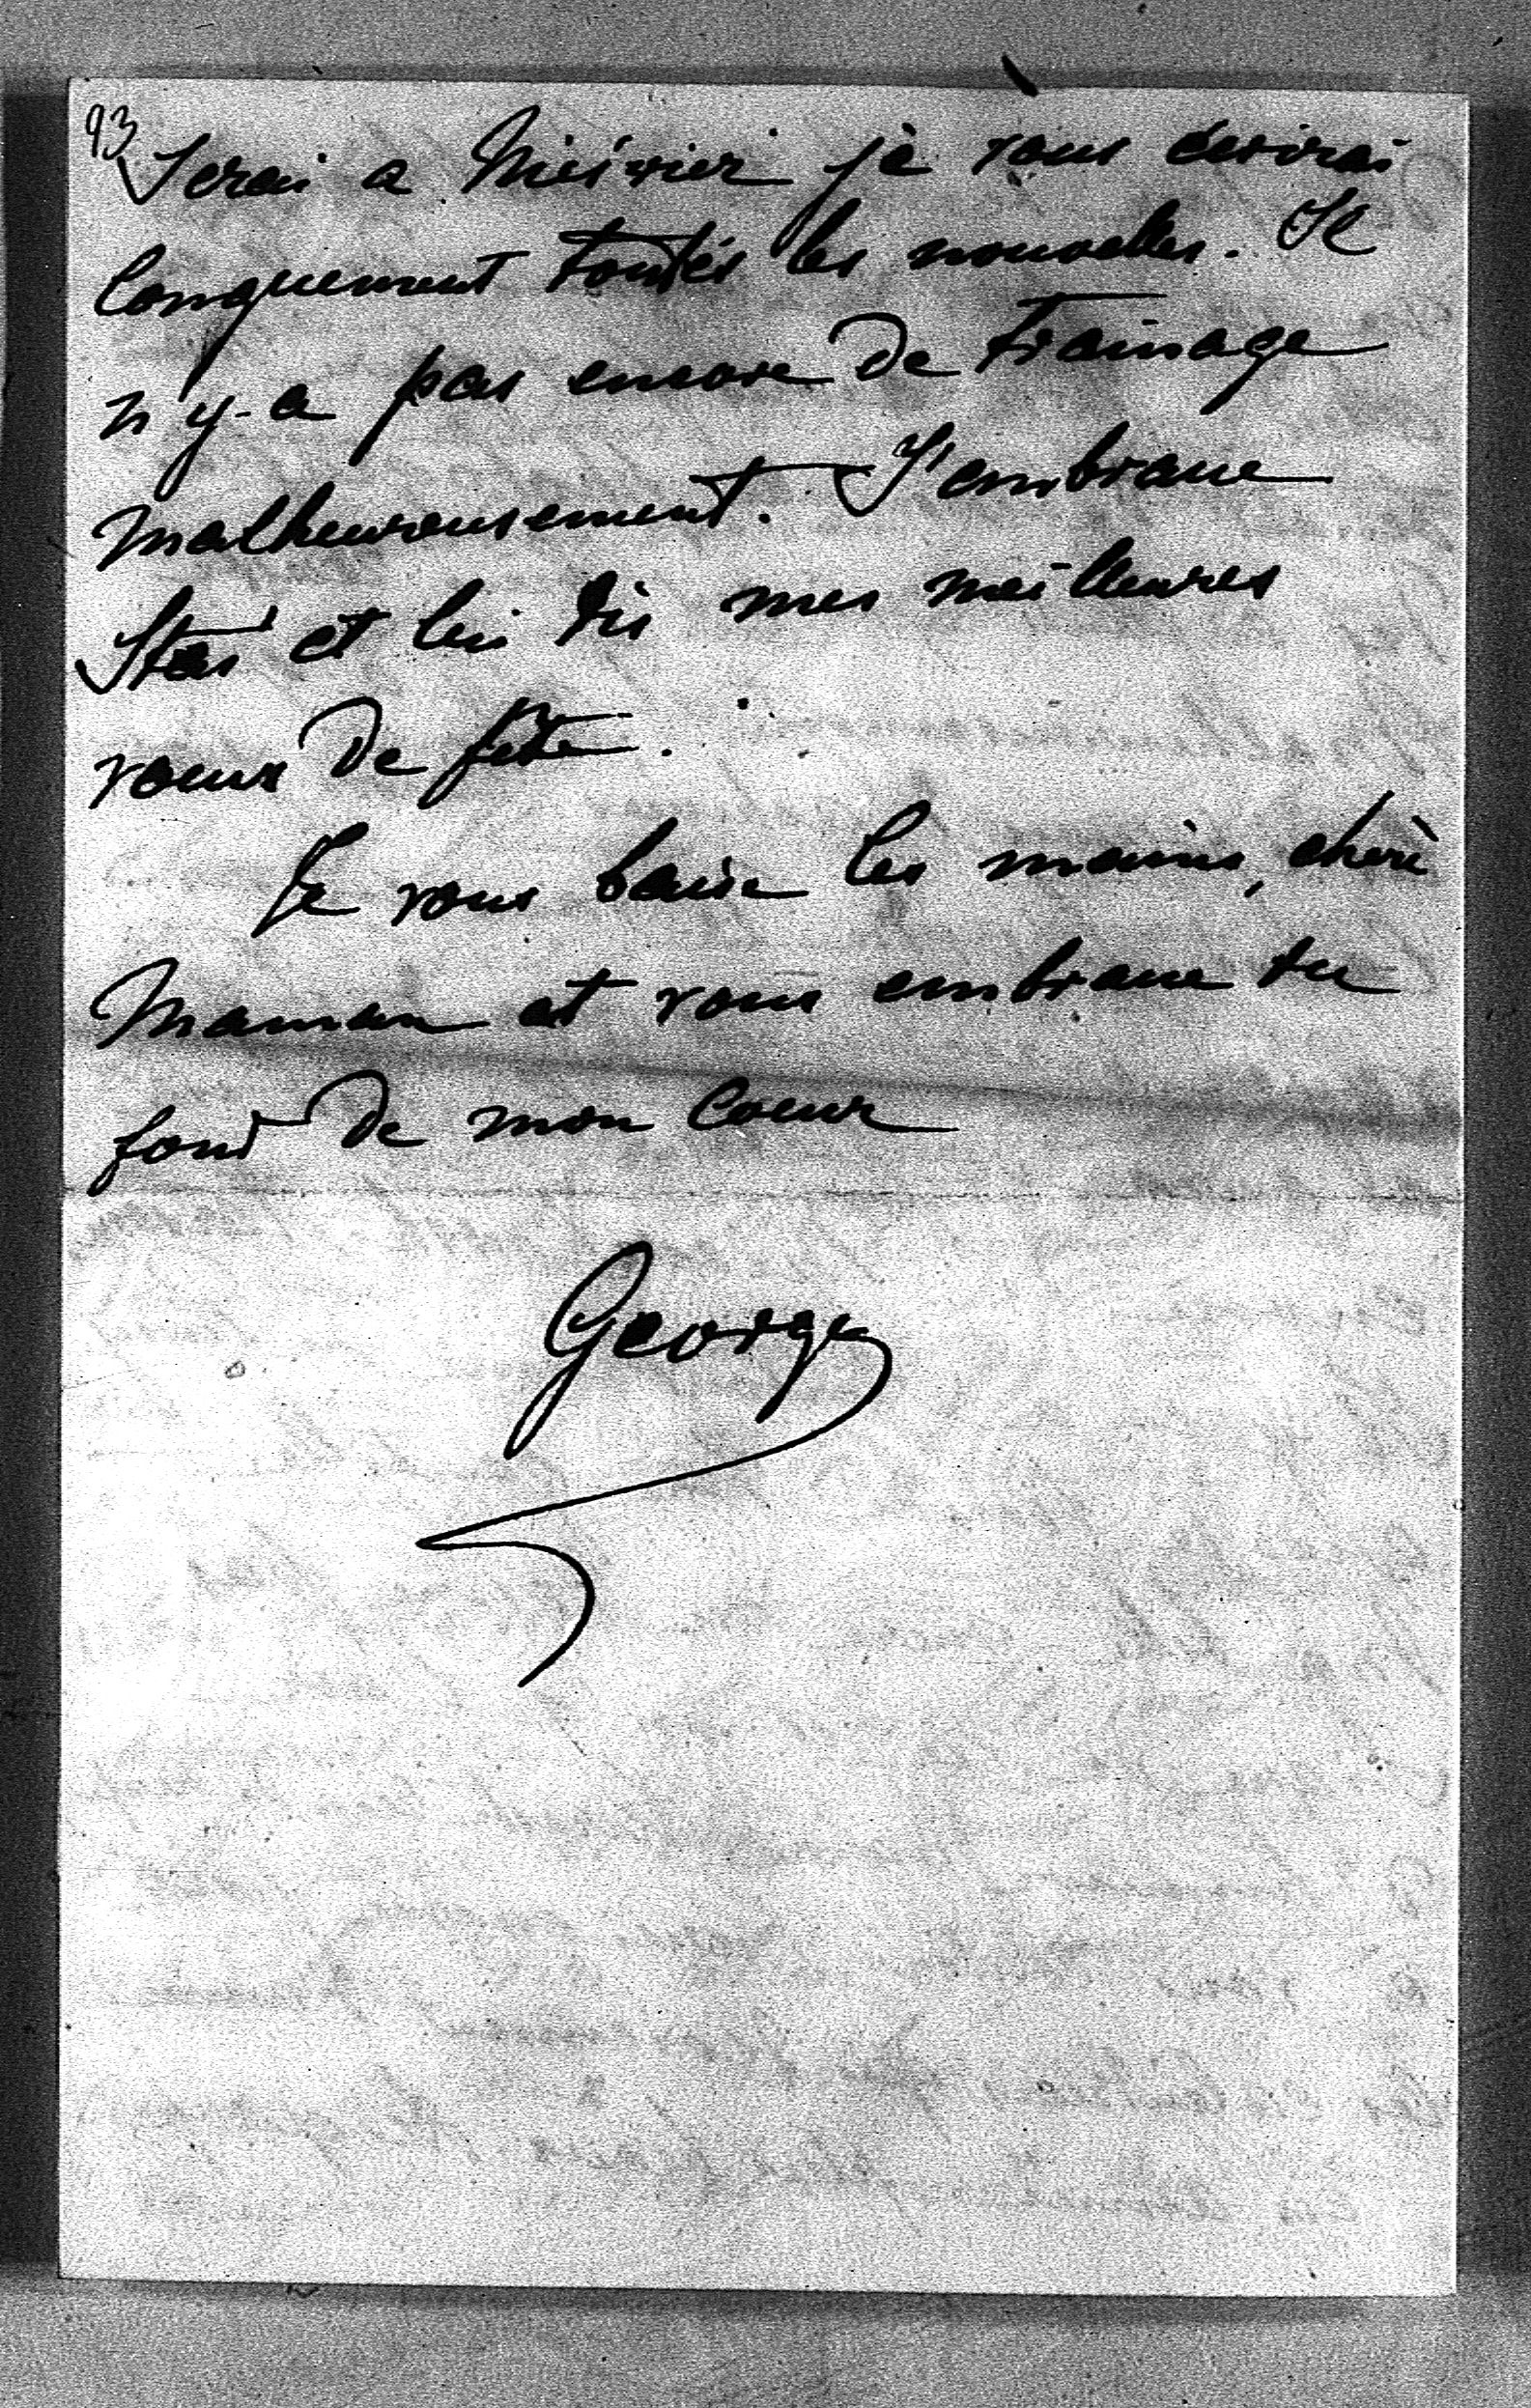 93
serai a Nieśwież je vous écrirai
longuement toutes les nouvelles. Il
n'y-a pas encore de trainage
malheureusement. J'embrasse
Staś et lui dis mes meilleures
voeux de fête.
Je vous baise les mains, chère
Maman et vous embrasse du
fond de mon coeur
George